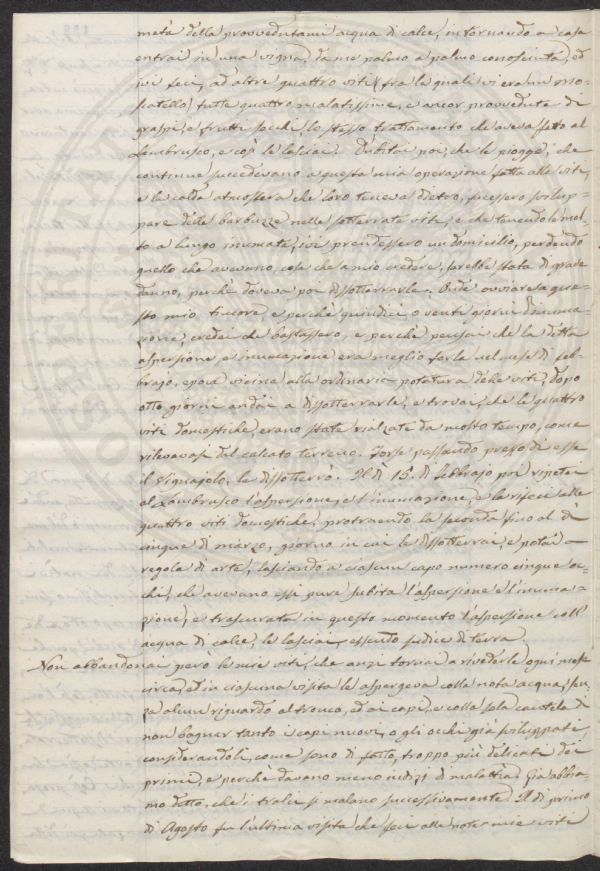 metà della provvedutami acqua di calce, in tornando a casa
entrai in una vigna, da me palmo a palmo conosciuta, ed
ivi feci, ad altre quattro viti (fra le quali vi era un mo-
scatello) tutte quattro malatissime, e ancor provvedute di
graspi, e frutti secchi, lo stesso trattamento che aveva fatto al
Lambrusco, e così le lasciai. Dubitai poi, che le piogge, che
continue succedevano a questa mia operazione fatta alle viti,
e la calda atmosfera che loro teneva dietro, facessero svilup-
pare delle barbuzze nelle sotterrate viti, e che tenendole mol-
to a lungo inumate, ivi prendessero un domicilio, perdendo
quello che avevano, cosa che a mio credere, sarebbe stata di grave
danno, perchè doveva poi dissotterrarle. Onde ovviare a que-
sto mio timore, e perchè quindici, o venti giorni d'inuma-
zione credei che bastassero, e perchè pensai che la ditta
aspersione, e inumazione era meglio farla nel mese di feb-
brajo, epoca vicina alla ordinaria potatura delle viti, dopo
otto giorni andai a dissotterrarle, e trovai, che le quattro
viti domestiche, erano state rialzate da molto tempo, come
rilevavasi dal calcato terreno. Forse passando presso di esse
il Vignajolo, le dissotterrò. Il dì 15. di febbrajo poi ripetei
al Lambrusco l'aspersione, e l'inumazione, e la rifeci alle
quattro viti domestiche, protraendo la seconda fino al dì
cinque di marzo, giorno in cui le dissotterrai, e potai a
regola di arte, lasciando a ciascun capo numero cinque oc-
chi, che avevano essi pure subita l'aspersione e l'inuma-
zione; e trascurata in questo momento l'aspersione coll'
acqua di calce, le lasciai, essendo sudice di terra.
Non abbandonai però le mie viti, che anzi tornai a rivederle ogni mese
circa, ed in ciascuna visita le aspergeva colla nota acqua, sen-
za alcun riguardo al tronco, ed ai capi, e colla sola cautela di
non bagnar tanto i capi nuovi, o gli occhi già sviluppati,
considerandoli, come sono di fatto, troppo più delicati dei
primi, e perchè davano meno indizi di malattia. Già abbia-
mo detto, che i tralci si malano successivamente. Il dì primo
di Agosto fu l'ultima visita che feci alle note mie viti